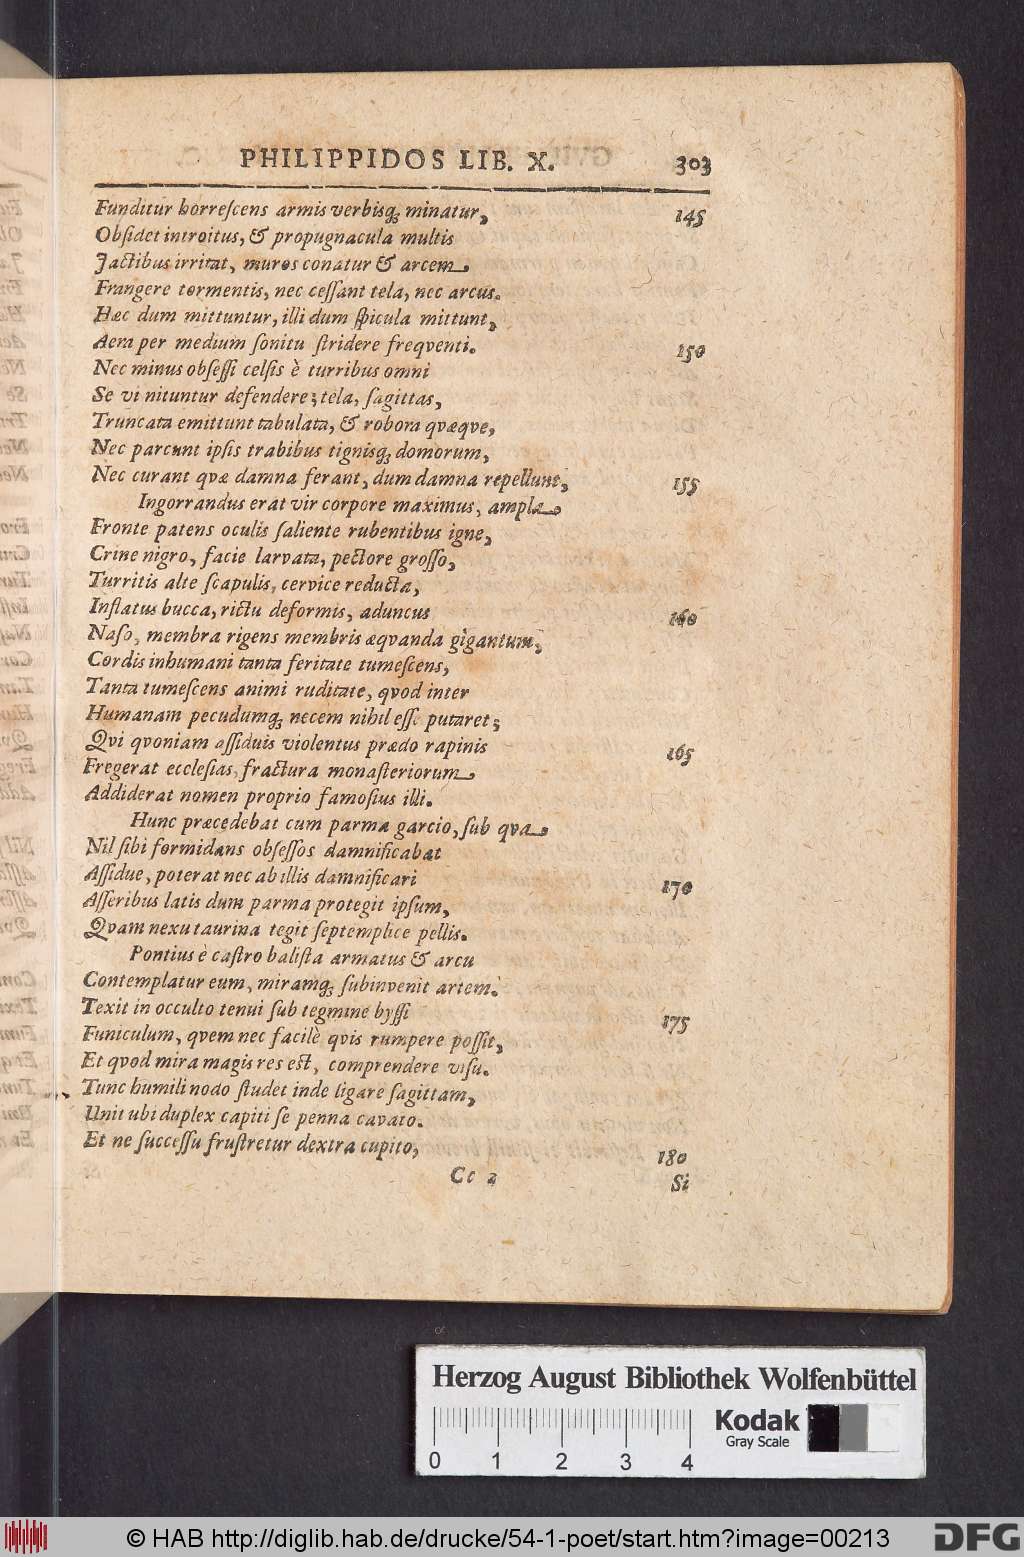 PHILIPPIDOS LIB. X. 303
Funditur horreſcens armis verbisq; minatur, 145
Obſidet introitus, & propugnacula multis
Jactibus irritat, muros conatur & arcem
Frangere tormentis, nec ceſſant tela, nec arcus.
Hæc dum mittuntur, illi dum ſpicula mittunt,
Aera per medium ſonitu ſtridere freqventi. 150
Nec minus obſeſſi celſis è turribus omni
Se vi nituntur defendere; tela, ſagittas,
Truncata emittunt tabulata, & robora qvæqve,
Nec parcunt ipſis trabibus tignisq; domorum,
Nec curant qvæ damna ferant, dum damna repellunt, 155
Ingorrandus erat vir corpore maximus, ampla
Fronte patens oculis ſaliente rubentibus igne,
Crine nigro, facie larvata, pectore groſſo,
Turritis alte ſcapulis, cervice reducta,
Inflatus bucca, rictu deformis, aduncus 160
Naſo, membra rigens membris æqvanda gigantum,
Cordis inhumani tanta feritate tumeſcens,
Tanta tumeſcens animi ruditate, qvod inter
Humanam pecudumq; necem nihil eſſe putaret;
Qvi qvoniam aſſiduis violentus prædo rapinis 165
Fregerat eccleſias, fractura monaſteriorum
Addiderat nomen proprio famoſius illi.
Hunc præcedebat cum parma garcio, ſub qva
Nil ſibi formidans obſeſſos damnificabat
Aſſidue, poterat nec ab illis damnificari 170
Aſſeribus latis dum parma protegit ipſum,
Qvam nexu taurina tegit ſeptemplice pellis.
Pontius è caſtro baliſta armatus & arcu
Contemplatur eum, miramq; ſubinvenit artem.
Texit in occulto tenui ſub tegmine byſſi 175
Funiculum, qvem nec facilè qvis rumpere poſſit,
Et qvod mira magis res eſt, comprendere viſu.
Tunc humili nodo ſtudet inde ligare ſagittam,
Unit ubi duplex capiti ſe penna cavato.
Et ne ſucceſſu fruſtretur dextra cupito, 180
Cc 2 Si
Herzog August Bibliothek Wolfenbüttel
Kodak
Gray Scale
0 1 2 3 4
© HAB http://diglib.hab.de/drucke/54-1-poet/start.htm?image=00213
DFG